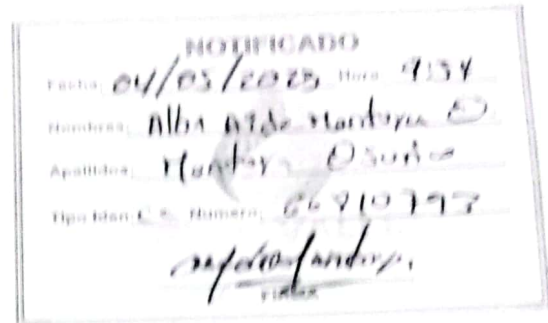 NOTIFICADO
Fecha: 04/05/2023 Hora 9:34
Nombres: Alba Aide Montoya O
Apellidos: Montoya
Tipo Iden: C.C. Numero:
FIRMA